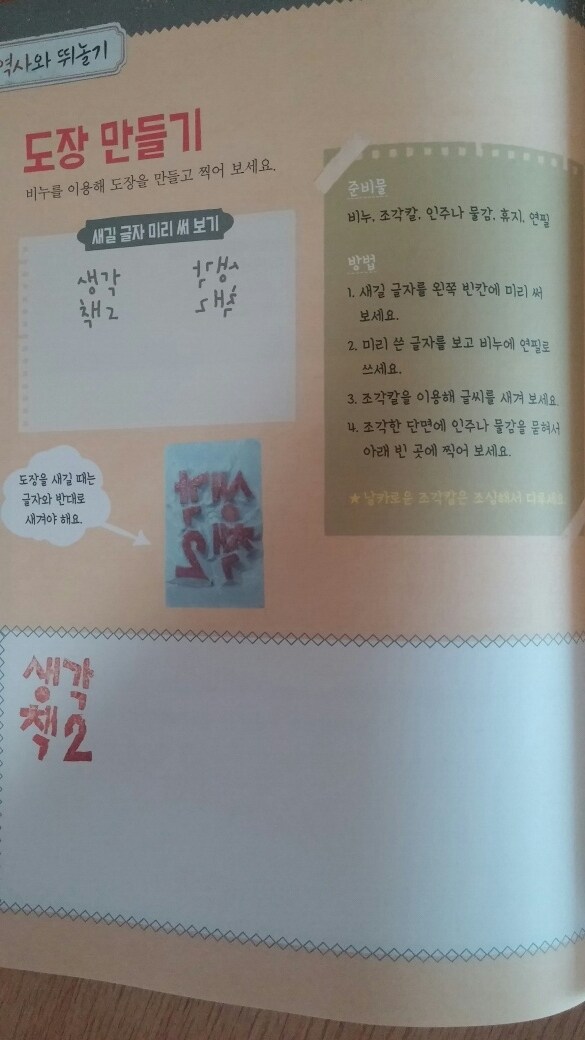 역사와 뛰놀기
도장 만들기
비누를 이용해 도장을 만들고 찍어 보세요.
새길 글자 미리 써 보기
생각
책2
생각
책2
도장을 새길 때는
글자와 반대로
새겨야 해요.
생각
책2
준비물
비누, 조각칼, 인주나 물감, 휴지, 연필
방법
1. 새길 글자를 왼쪽 빈칸에 미리 써
보세요.
2. 미리 쓴 글자를 보고 비누에 연필로
쓰세요.
3. 조각칼을 이용해 글씨를 새겨 보세요.
4. 조각한 단면에 인주나 물감을 묻혀서
아래 빈 곳에 찍어 보세요.
★날카로운 조각칼은 조심해서 다루세요.
생각
책2